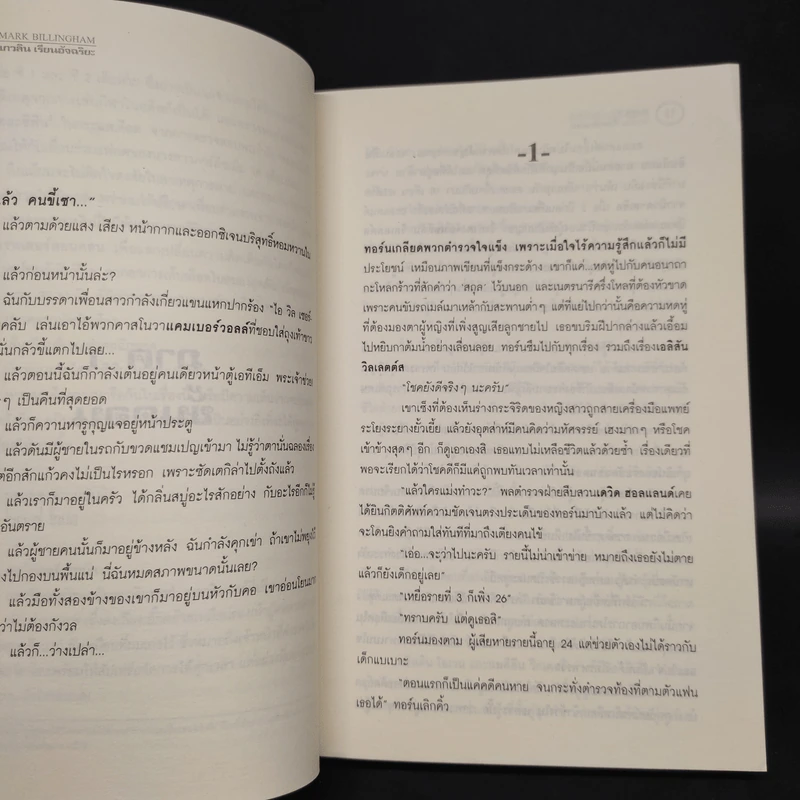 MARK BILLINGHAM
เรียนอัจฉริยะ
คนขี้เซา..."
แล้วตามด้วยแสง เสียง หน้ากากและออกซิเจนบริสุทธิ์หอมหวานใน
แล้วก่อนหน้านั้นล่ะ?
ฉันกับบรรดาเพื่อนสาวกำลังเกี่ยวแขนแหกปากร้อง "ไอ วิล เซอร์-
เล่นเอาไอ้พวกคาสโนวาแคมเบอร์วอลล์ที่ชอบใส่ถุงเท้าขาว
นั่นกลัวขี้แตกไปเลย...
แล้วตอนนี้ฉันก็กำลังเต้นอยู่คนเดียวหน้าตู้เอทีเอ็ม พระเจ้าช่วย
ๆ เป็นคืนที่สุดยอด
แล้วก็ควานหารูกุญแจอยู่หน้าประตู
แล้วดันมีผู้ชายในรถกับขวดแชมเปญเข้ามา ไม่รู้ว่าตานั่นฉลองเรื่อง
อีกสักแก้วคงไม่เป็นไรหรอก เพราะซัดเตกีล่าไปตั้งถังแล้ว
แล้วเราก็มาอยู่ในครัว ได้กลิ่นสบู่อะไรสักอย่าง กับอะไรอีกก็ไม่รู้
อันตราย
แล้วผู้ชายคนนั้นก็มาอยู่ข้างหลัง ฉันกำลังคุกเข่า ถ้าเขาไม่พยุงไว้
ไปกองบนพื้นแน่ นี่ฉันหมดสภาพขนาดนั้นเลย?
แล้วมือทั้งสองข้างของเขาก็มาอยู่บนหัวกับคอ เขาอ่อนโยนมาก
ว่าไม่ต้องกังวล
แล้วก็...ว่างเปล่า...
-1-
ทอร์นเกลียดพวกตำรวจใจแข็ง เพราะเมื่อใจไร้ความรู้สึกแล้วก็ไม่มี
ประโยชน์ เหมือนภาพเขียนที่แข็งกระด้าง เขาก็แค่...หดหู่ไปกับคนอนาถา
กะโหลกร้าวที่สักคำว่า 'สถุล' ไว้บนอก และเนตรนารีครึ่งโหลที่ต้องหัวขาด
เพราะคนขับรถเมล์เมาเหล้ากับสะพานต่ำๆ แต่ที่แย่ไปกว่านั้นคือความหดหู่
ที่ต้องมองตาผู้หญิงที่เพิ่งสูญเสียลูกชายไป เธอขบริมฝีปากล่างแล้วเอื้อม
ไปหยิบกาต้มน้ำอย่างเลื่อนลอย ทอร์นซึมไปกับทุกเรื่อง รวมถึงเรื่องเอลิสัน
วิลเลตต์ส
"โชคยังดีจริงๆ นะครับ"
เขาเซ็งที่ต้องเห็นร่างกระจิริดของหญิงสาวถูกสายเครื่องมือแพทย์
ระโยงระยางยั้วเยี้ย แล้วยังอุตส่าห์มีคนคิดว่ามหัศจรรย์ เฮงมากๆ หรือโชค
เข้าข้างสุดๆ อีก ก็ดูเอาเองสิ เธอแทบไม่เหลือชีวิตแล้วด้วยซ้ำ เรื่องเดียวที่
พอจะเรียกได้ว่าโชคดีก็มีแค่ถูกพบทันเวลาเท่านั้น
"แล้วใครแม่งทำวะ?" พลตำรวจฝ่ายสืบสวนเดวิด ฮอลแลนด์เคย
ได้ยินกิตติศัพท์ความชัดเจนตรงประเด็นของทอร์นมาบ้างแล้ว แต่ไม่คิดว่า
จะโดนยิงคำถามใส่ทันทีที่มาถึงเตียงคนไข้
"เอ่อ...จะว่าไปนะครับ รายนี้ไม่น่าเข้าข่าย หมายถึงเธอยังไม่ตาย
แล้วก็ยังเด็กอยู่เลย"
"เหยื่อรายที่ 3 ก็เพิ่ง 26"
"ทราบครับ แต่ดูเธอสิ"
ทอร์นมองตาม ผู้เสียหายรายนี้อายุ 24 แต่ช่วยตัวเองไม่ได้ราวกับ
เด็กแบเบาะ
"ตอนแรกก็เป็นแค่คดีคนหาย จนกระทั่งตำรวจท้องที่ตามตัวแฟน
เธอได้" ทอร์นเลิกคิ้ว